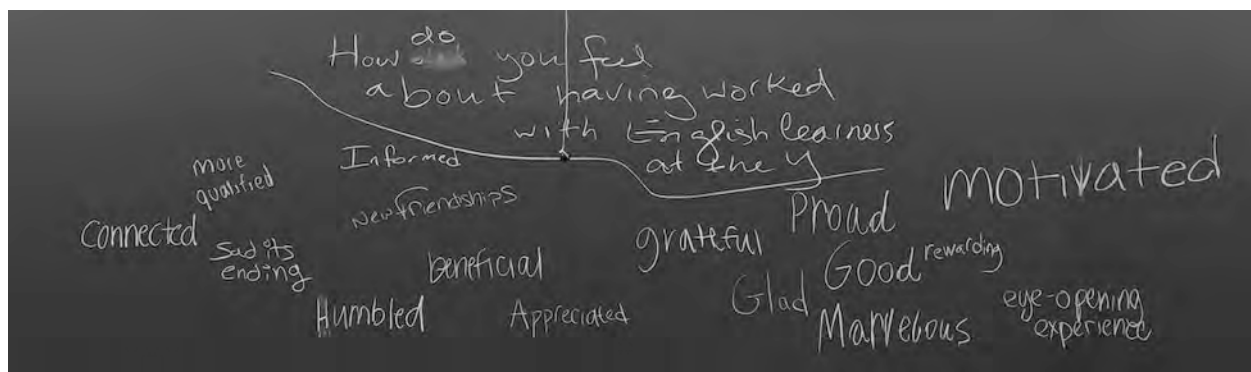 How do you feel
about having worked
with English learness
at the Y
Informed
more
qualified
New friendships
Connected
Sad its
ending
beneficial
Humbled
Appreciated
grateful
Proud
motivated
Good
rewarding
Glad
Marvelous
eye-opening
experience